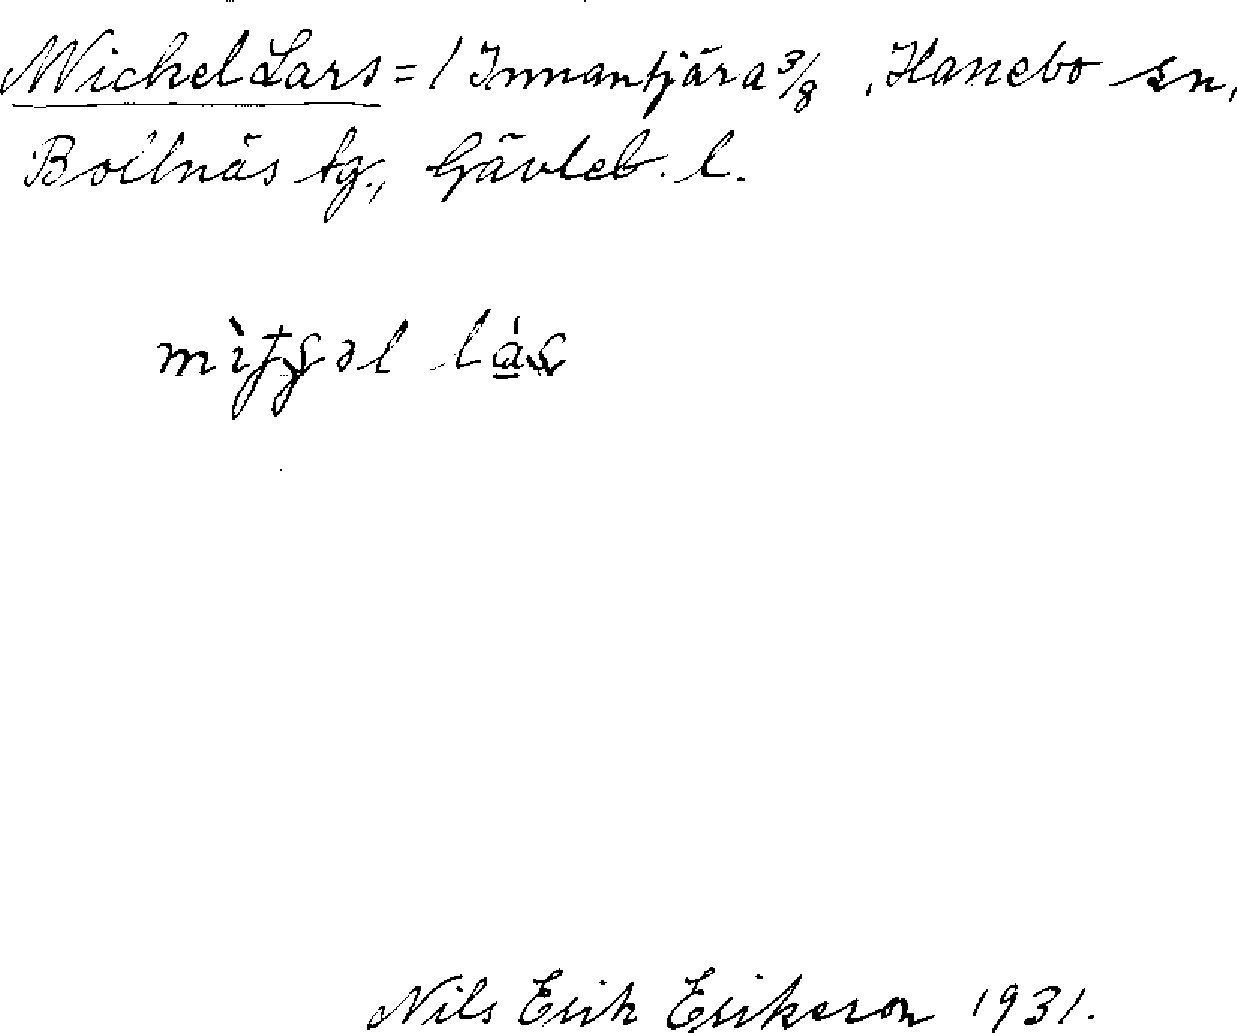 Mickel Lars = / Innantjära 3/8, Hanebo sn,
Bollnäs tg., Gävleb. l.
Nils Erik Erikson 1931.